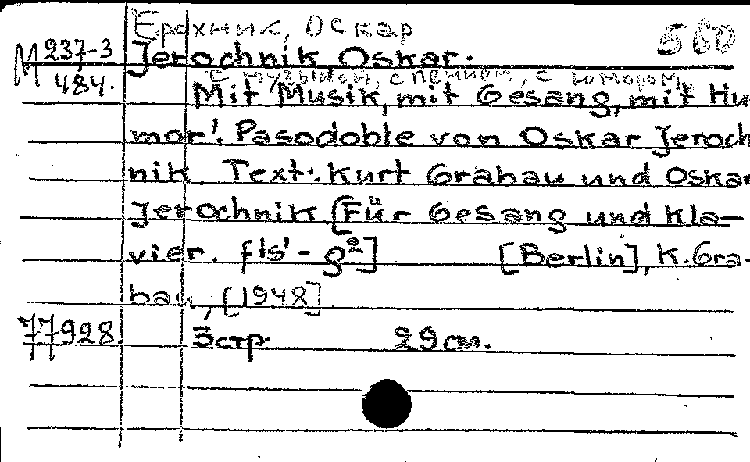 Ерохник, Оскар 560
М 237-3 Jerochnik Oskar.
484. С музыкой, с пением, с юмором
Mit Musik, mit Gesang, mit Hu
mor! Pasodoble von Oskar Jeroch
nik. Text: Kurt Grabau und Oskar
Jerochnik [Für Gesang und Kla-
vier. fis' - g²] [Berlin], K. Gra-
bau, [1948]
77928. 3 стр. 29 см.